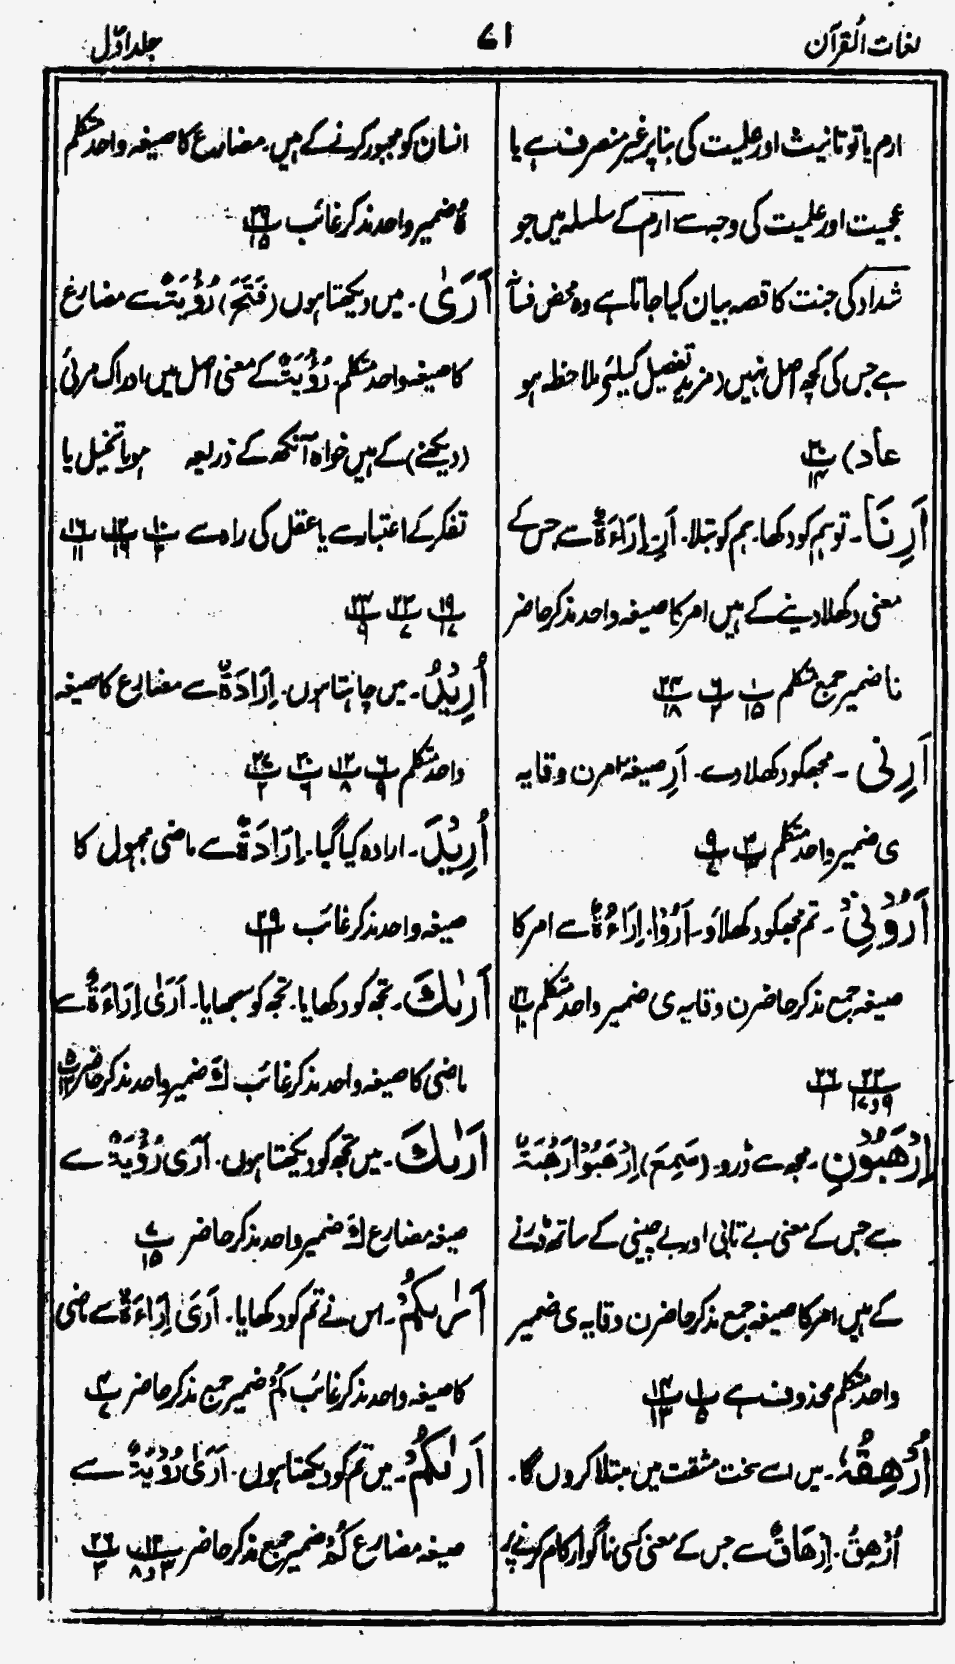 لغات القرآن
۷۱
جلد اوّل
ارم یا تو تانیث اور علمیت کی بنا پر غیر منصرف ہے یا
عجمیت اور علمیت کی وجہ سے ارم کے سلسلہ میں جو
شداد کی جنت کا قصہ بیان کیا جاتا ہے وہ محض فسانہ
ہے جس کی کچھ اصل نہیں (مزید تفصیل کیلئے ملاحظہ ہو
عاد) پ۳۰ ۱۴
اَرِنَا۔ تو ہم کو دکھا۔ ہم کو بتلا۔ اَرِ۔ اِرَاءَةٌ سے جس کے
معنی دکھلا دینے کے ہیں امر کا صیغہ واحد مذکر حاضر
نا ضمیر جمع متکلم پ۱ ۱۵ پ۶ ۲ پ۲۴ ۱۸
اَرِنی ۔ مجھکو دکھلا دے۔ اَرِ صیغہ امر ن وقایہ
ی ضمیر واحد متکلم پ۳ ۳ پ۹ ۷
اَرُوْنِیْ ۔ تم مجھکو دکھلاؤ۔ اَرُوْا۔ اِرَاءَةٌ سے امر کا
صیغہ جمع مذکر حاضر ن وقایہ ی ضمیر واحد متکلم پ۲۱ ۱۰
پ۲۲ ۹و۱۷ پ۲۶ ۱
اِرْهَبُوْنِ ۔ مجھ سے ڈرو۔ (سَمِعَ) اِرْهَبُوْا رَهْبَةٌ
سے جس کے معنی بے تابی اور بے چینی کے ساتھ ڈرنے
کے ہیں امر کا صیغہ جمع مذکر حاضر ن وقایہ ی ضمیر
واحد متکلم محذوف ہے پ۱ ۵ پ۱۴ ۱۳
اُرْهِقُهٗ ۔ میں اسے سخت مشقت میں مبتلا کروں گا۔
اُرْهِقُ ۔ اِرْهَاقٌ سے جس کے معنی کسی ناگوار کام کرنے پر
انسان کو مجبور کرنے کے ہیں۔ مضارع کا صیغہ واحد متکلم
ہٗ ضمیر واحد مذکر غائب پ۲۹ ۱۵
اَرَیٰ ۔ میں دیکھتا ہوں (فَتَحَ) رُؤْيَةٌ سے مضارع
کا صیغہ واحد متکلم۔ رُؤْيَةٌ کے معنی اصل میں ادراک مرئی
(دیکھنے) کے ہیں خواہ آنکھ کے ذریعہ ہو یا تخیل یا
تفکر کے اعتبار سے یا عقل کی راہ سے پ۱۰ ۲ پ۱۲ ۱۶ پ۱۶ ۱۱
پ۱۹ ۱۷ پ۲۳ ۷ پ۲۴ ۹
اُرِیْدُ ۔ میں چاہتا ہوں۔ اِرَادَةٌ سے مضارع کا صیغہ
واحد متکلم پ۶ ۹ پ۱۲ ۸ پ۲۰ ۶ پ۲۷ ۲
اُرِیْدَ ۔ ارادہ کیا گیا۔ اِرَادَةٌ سے ماضی مجہول کا
صیغہ واحد مذکر غائب پ۲۹ ۱۱
اَرٰىكَ ۔ تجھ کو دکھایا۔ تجھ کو سمجھایا۔ اَرَیٰ اِرَاءَةٌ سے
ماضی کا صیغہ واحد مذکر غائب كَ ضمیر واحد مذکر حاضر پ۵ ۱۳
اَرٰىكَ ۔ میں تجھ کو دیکھتا ہوں۔ اَرَی رُؤْيَةٌ سے
صیغہ مضارع كَ ضمیر واحد مذکر حاضر پ۷ ۱۵
اَرٰىكُمْ ۔ اس نے تم کو دکھایا۔ اَرَیٰ اِرَاءَةٌ سے ماضی
کا صیغہ واحد مذکر غائب كُمْ ضمیر جمع مذکر حاضر پ۴ ۷
اَرٰىكُمْ ۔ میں تم کو دیکھتا ہوں۔ اَرَیٰ رُؤْيَةٌ سے
صیغہ مضارع كُمْ ضمیر جمع مذکر حاضر پ۱۲ ۳و۸ پ۲۶ ۳